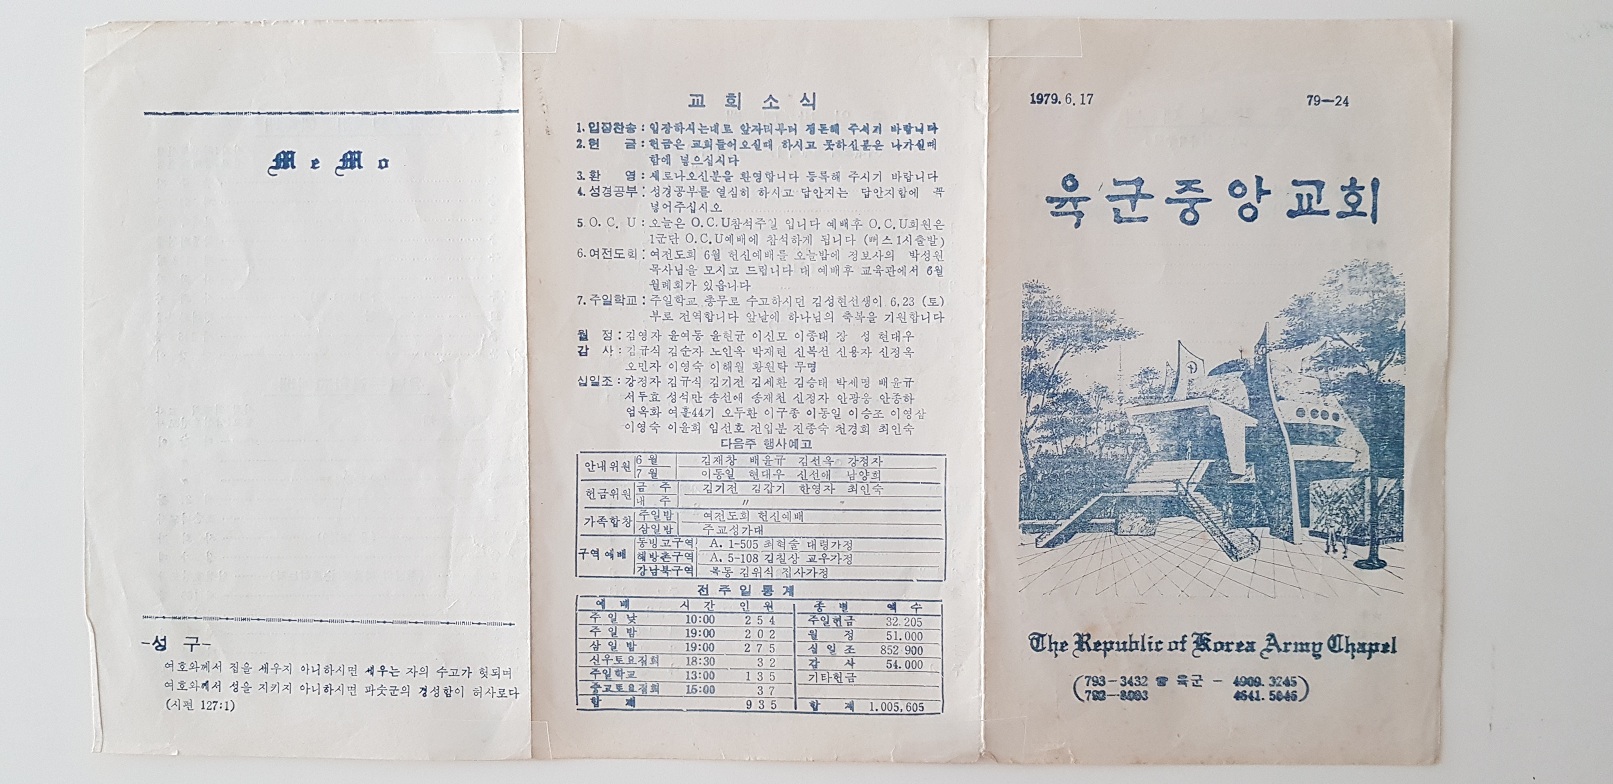 MeMo
-성 구-
여호와께서 집을 세우지 아니하시면 세우는 자의 수고가 헛되며
여호와께서 성을 지키지 아니하시면 파숫군의 경성함이 허사로다
(시편 127:1)
교 회 소 식
1. 입장찬송 : 입장하시는대로 앞자리부터 정돈해 주시기 바랍니다
2. 헌 금 : 헌금은 교회들어오실때 하시고 못하신분은 나가실때
함에 넣으십시다
3. 환 영 : 새로나오신분을 환영합니다 등록해 주시기 바랍니다
4. 성경공부 : 성경공부를 열심히 하시고 답안지는 답안지함에 꼭
넣어주십시오
5. O. C. U : 오늘은 O.C.U참석주일 입니다 예배후 O.C.U회원은
1군단 O.C.U예배에 참석하게 됩니다 (뻐스 1시출발)
6. 여전도회 : 여전도회 6월 헌신예배를 오늘밤에 정보사의 박성원
목사님을 모시고 드립니다 대 예배후 교육관에서 6월
월례회가 있읍니다
7. 주일학교 : 주일학교 총무로 수고하시던 김성현선생이 6.23 (토)
부로 전역합니다 앞날에 하나님의 축복을 기원합니다
월 정 : 김영자 윤여동 윤헌균 이신모 이종태 장 성 현대우
감 사 : 김규식 김순자 노인옥 박재련 신복선 신용자 신정옥
오민자 이영숙 이해월 황원탁 무명
십일조 : 강정자 김규식 김기전 김세환 김승태 박세명 배윤규
서두효 성석만 송선애 송재천 신정자 안광웅 안종하
엄옥화 여훈44기 오두환 이구종 이동일 이승조 이영삼
이영숙 이윤희 임선호 전입분 진종숙 천경희 최인숙
다음주 행사예고
안내위원 6 월 김재창 배윤규 김선옥 강정자
7 월 이동일 현대우 신선애 남양희
헌금위원 금 주 김기전 김갑기 한영자 최인숙
내 주 〃 〃
가족합창 주일밤 여전도회 헌신예배
삼일밤 주교성가대
구역예배 동빙고구역 A. 1-505 최혁술 대령가정
해방촌구역 A. 5-108 김칠상 교우가정
강남북구역 목동 김위식 집사가정
전 주 일 통 계
예 배 시 간 인 원 종 별 액 수
주 일 낮 10:00 254 주일헌금 32.205
주 일 밤 19:00 202 월 정 51.000
삼 일 밤 19:00 275 십 일 조 852 900
신우토요집회 18:30 32 감 사 54.000
주일학교 13:00 135 기타헌금
중고토요집회 15:00 37
합 계 935 합 계 1.005,605
1979. 6. 17 79-24
육군중앙교회
The Republic of Korea Army Chapel
793-3432 육군 -